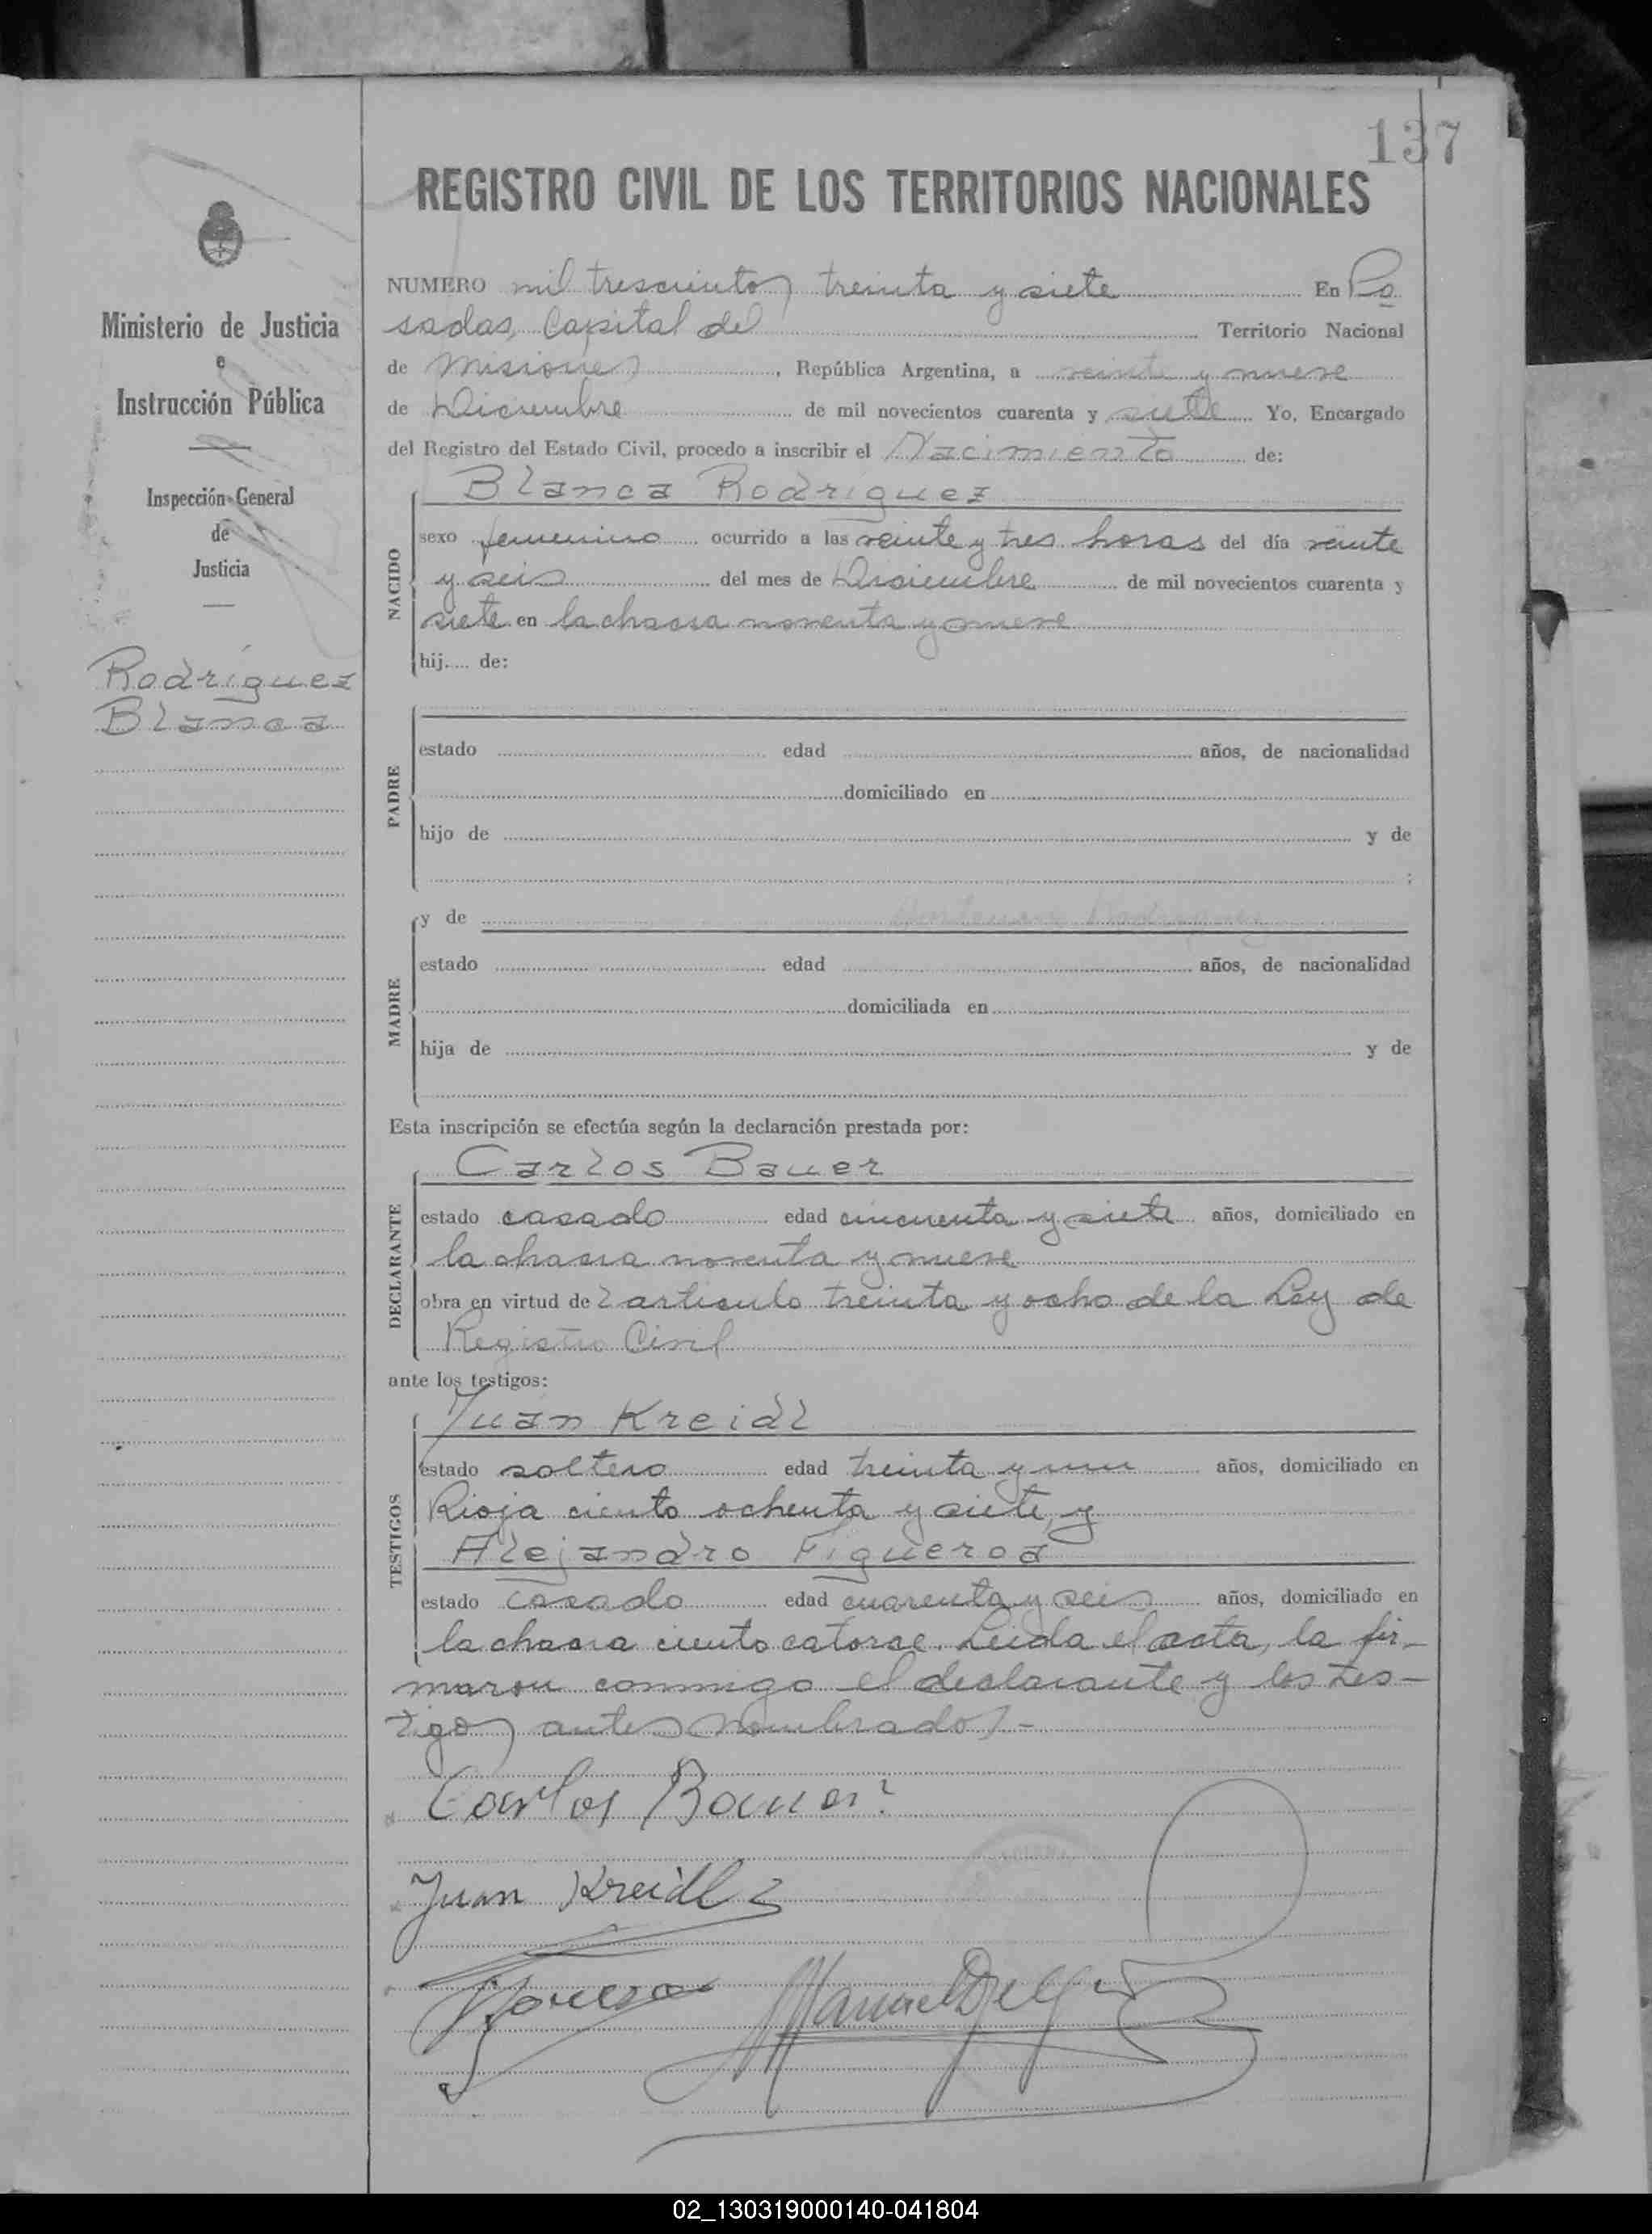 137
REGISTRO CIVIL DE LOS TERRITORIOS NACIONALES
Ministerio de Justicia
e
Instrucción Pública
Inspección General
de
Justicia
Rodríguez
Blanca
NUMERO mil trescientos treinta y siete En Po
sadas, Capital del Territorio Nacional
de Misiones, República Argentina, a veinte y nueve
de Diciembre de mil novecientos cuarenta y siete Yo, Encargado
del Registro del Estado Civil, procedo a inscribir el Nacimiento de:
NACIDO
Blanca Rodriguez
sexo femenino ocurrido a las veinte y tres horas del día veinte
y seis del mes de Diciembre de mil novecientos cuarenta y
siete en la chacra noventa y nueve
hij.... de:
PADRE
estado edad años, de nacionalidad
domiciliado en
hijo de y de
;
MADRE
y de
estado edad años, de nacionalidad
domiciliada en
hija de y de
Esta inscripción se efectúa según la declaración prestada por:
DECLARANTE
Carlos Bauer
estado casado edad cincuenta y siete años, domiciliado en
la chacra noventa y nueve
obra en virtud del articulo treinta y ocho de la Ley de
Registro Civil
ante los testigos:
TESTIGOS
Juan Kreidl
estado soltero edad treinta y un años, domiciliado en
Rioja ciento ochenta y siete, y
Alejandro Figueroa
estado casado edad cuarenta y seis años, domiciliado en
la chacra ciento catorce. Leida el acta, la fir-
maron conmigo el declarante y los tes-
tigos antes nombrados.-
Carlos Bauer
Juan Kreidl
02_130319000140-041804